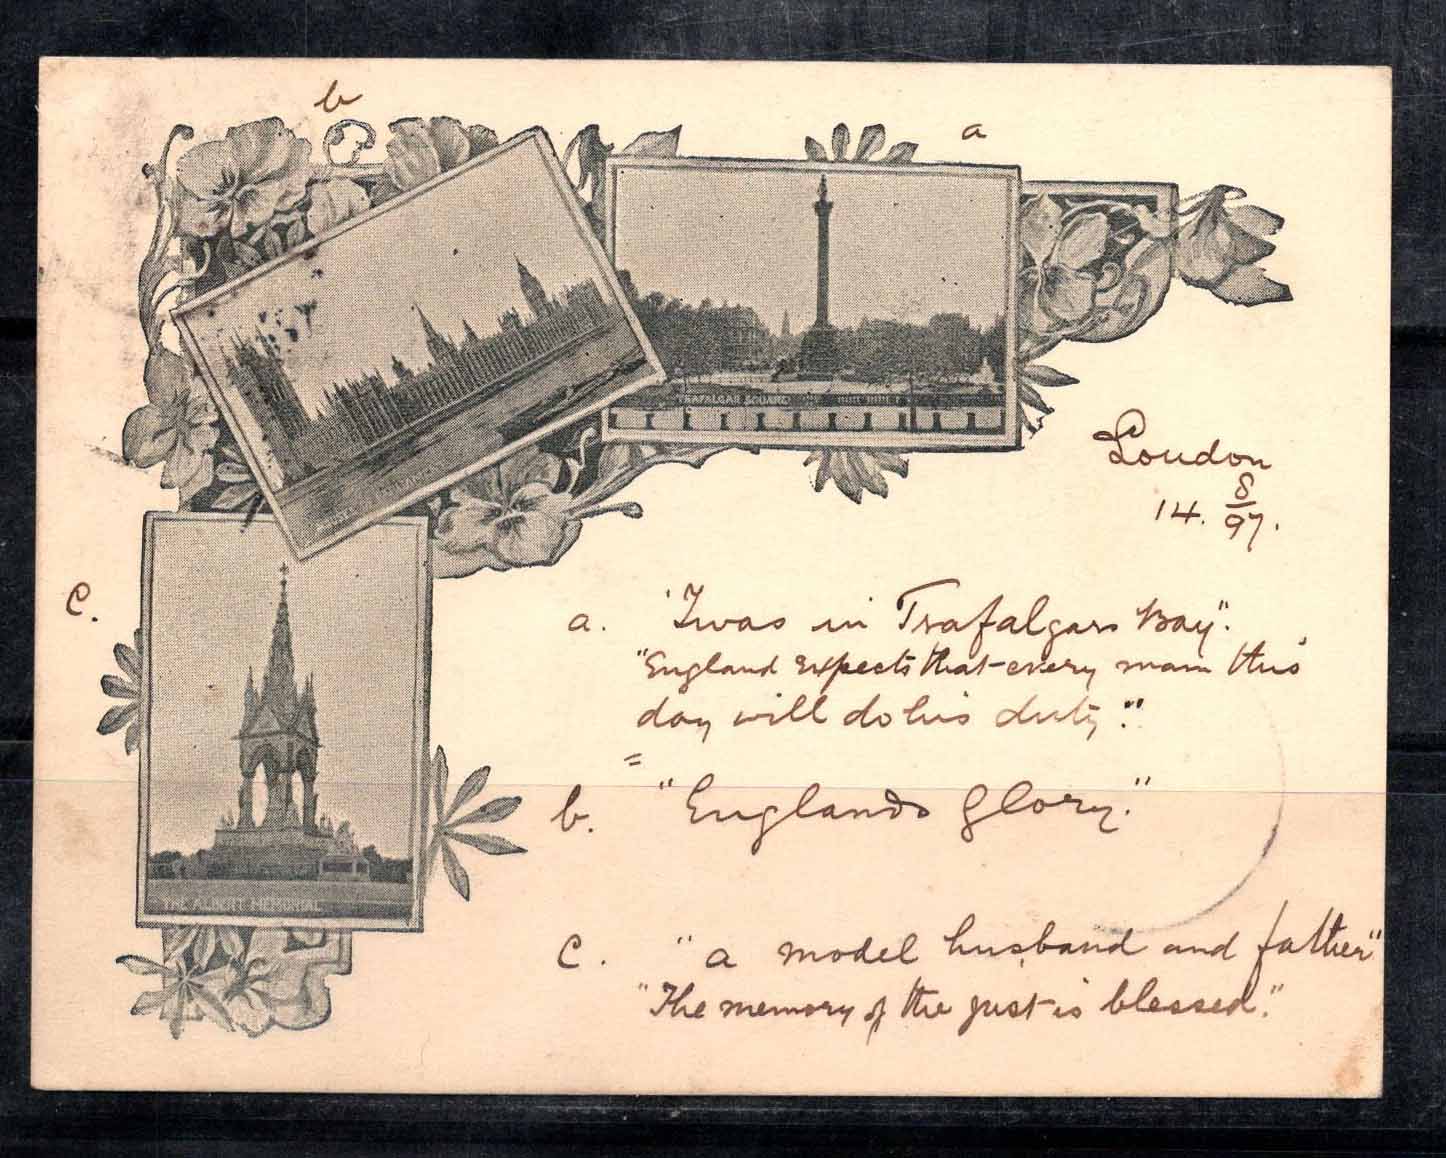 b
a
TRAFALGAR SQUARE
London
14. 8/97.
C.
a. 'Twas in Trafalgars Bay".
"England expects that every man this
day will do his duty".
=
b. "Englands Glory."
THE ALBERT MEMORIAL
C. "a model husband and father"
"The memory of the just is blessed."